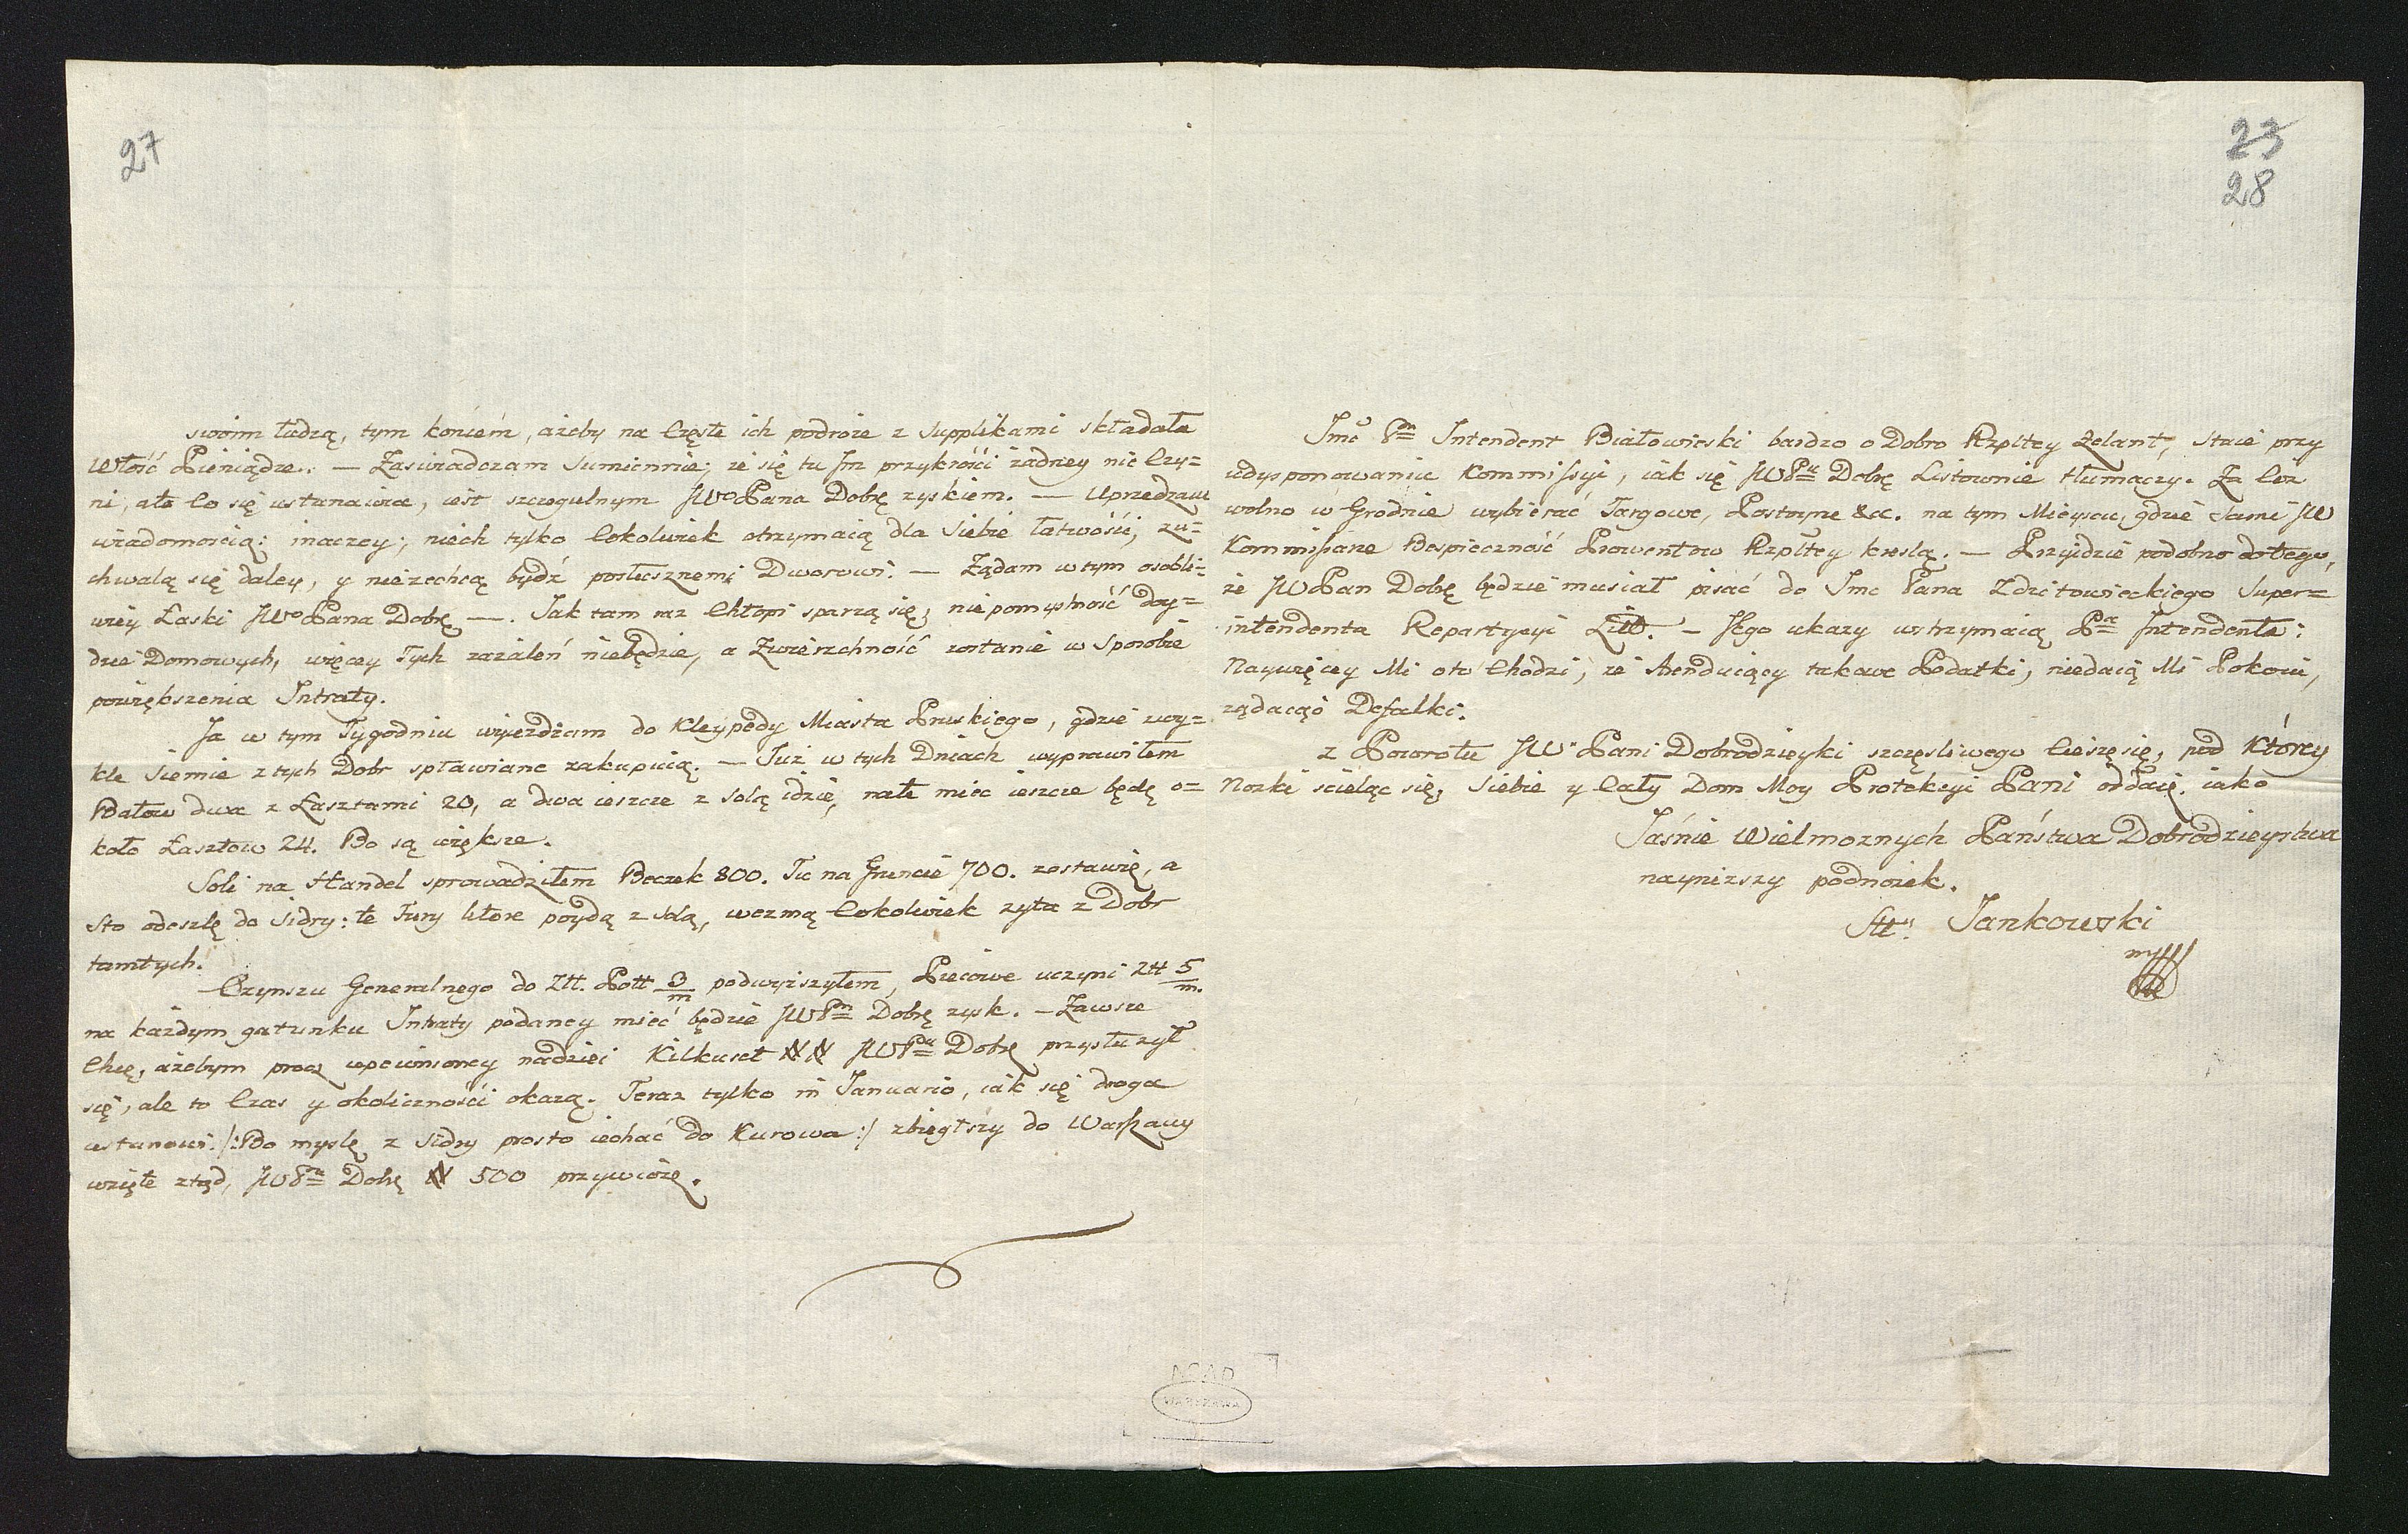 27
swoim łudzą, tym końcem, ażeby na Częste ich podroże z Supplikami składała
Włość Pieniądze. — Zaswiadczam Sumiennie, że się tu Im przykrości żadney nie Czy=
ni, ale Co się ustanawia, iest szczegulnym JWoPana Dobrę zyskiem. — Uprzedzam
wiadomoscią: inaczey, niech tylko Cokolwiek otrzymaią dla Siebie łatwości, zu=
chwalą się daley, y niezechcą bydź posłusznemi Dworowi. — Żądam w tym osobli=
wiey Łaski JWoPana Dobrę —. Jak tam raz Chłopi sparzą się, niepomyslność doy=
dzie Domowych, więcey Tych zażaleń niebędzie, a Zwierzchność zostanie w Sposobie
powiększenia Intraty.
Ja w tym Tygodniu wyjeżdżam do Kleypedy Miasta Pruskiego, gdzie zwy=
kle Siemie z tych Dobr spławiane zakupuią. — Już w tych Dniach wyprawiłem
Batow dwa z Łasztami 20, a dwa ieszcze z Solą idzie, na te miec ieszcze będę o=
koło Łasztow 24. Bo są większe.
Soli na Handel sprowadziłem Beczek 800. Tu na Gruncie 700. zostawię, a
Sto odeszlę do Sidry: te Fury ktore poydą z Solą, wezmą Cokolwiek żyta z Dobr
tamtych.
Czynszu Generalnego do Ztt. Pott 3/m podwyższyłem, Piecowe uczyni Ztt 5/m.
na każdym gatunku Intraty podaney mieć będzie JWPn Dobrę zysk. — Zawsze
Chcę, ażebym procz upewnioney nadziei Kilkuset # # JWPu Dobrę przysłużył
się, ale to Czas y okoliczności okażą. Teraz tylko in Januario, iak się droga
ustanowi /: Bo myslę z Sidry prosto iechać do Kurowa :/ zbiegłszy do Warszawy
wzięte ztąd, JWPu Dobrę # 500 przywiozę.
23
28
Jmć Pn Intendent Białowieski bardzo o Dobro Rzpltey Zelant, staie przy
udysponowaniu Kommissyi, iak się JWPu Dobrę Listownie tłumaczy. Za Coż
wolno w Grodnie wybierać Targowe, Postoyne &c. na tym Mieyscu, gdzie Sami JW
Kommissarze Bespieczność Prowentow Rzpltey kreslą. — Przyidzie podobno do tego,
że JWPan Dobrę będzie musiał pisać do Jmc Pana Zdzitowieckiego Super=
intendenta Repartycyi Litt. — Jego ukazy wstrzymaią Pa Intendenta:
Naywięcey Mi oto Chodzi, że Arenduiący takowe Podatki, niedaią Mi Pokoiu,
żądaiąc Defalki.
z Powrotu JWo Pani Dobrodzieyki szczęsliwego Cieszę się, pod Ktorey
Nożki scieląc się, Siebie y Cały Dom Moy Protekcyi Pani oddaię. iako
Jaśnie Wielmoznych Państwa Dobrodzieystwa
naynizszy podnożek.
Jankowski
ACAD
WARSZAWA